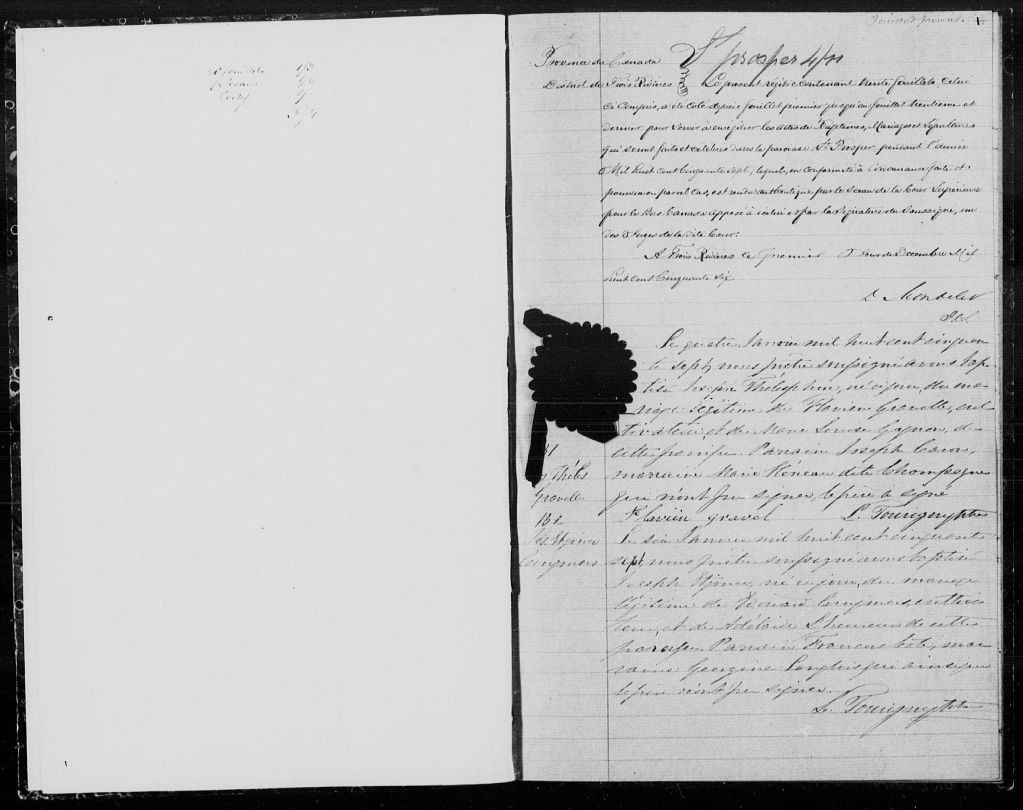 1/3
1/9
3/9
feuillet premier. 1.
Province du Canada St prosper 4/01
District de Trois Rivières Le present régitre contenant trente feuillets, celui
ci Compris, a été coté depuis feuillet premier jusqu'au feuillet trentieme et
dernier pour servir à enrégitrer les actes de Baptemes, Mariages et Sepultures
qui seront faits et celebrés dans la paroisse St Prosper, pendant l'année
Mil huit cent Cinquante Sept; lequel, en conformité à l'ordonnance faite et
pourvue en pareil Cas, est rendu authentique par le Sceau de la Cour Supérieure
pour le Bas Canada apposé à icelui et par la Signature du Soussigné, un
des Juges de la dite Cour.
A Trois Rivières ce premier Jour de Decembre Mil
huit cent Cinquante Six
D Mondelet
J.C.S.
Le quatre Janvier mil huit cent cinquan
te sept, nous prêtre soussigné avons bap
tisé Théophile, né ce jour, du ma
riage légitime de Gravelle, cul
tivateur, et de Marie Louise Gagnon, de
cette paroisse. Parrain Joseph Caron,
marraine Marie dite Champagne
qui n'ont pu signer, le père a signé
B1
Gravelle
gravel L. Tourigny ptre
B2
Le six Janvier mil huit cent cinquante
sept, nous prêtre soussigné avons baptisé
Joseph né ce jour, du mariage
légitime de cultiva
teur, et de Adélaïde de cette
paroisse. Parrain François mar
raine Georgine Langlois qui ainsi que
le père n'ont pu signer.
L. Tourigny ptre